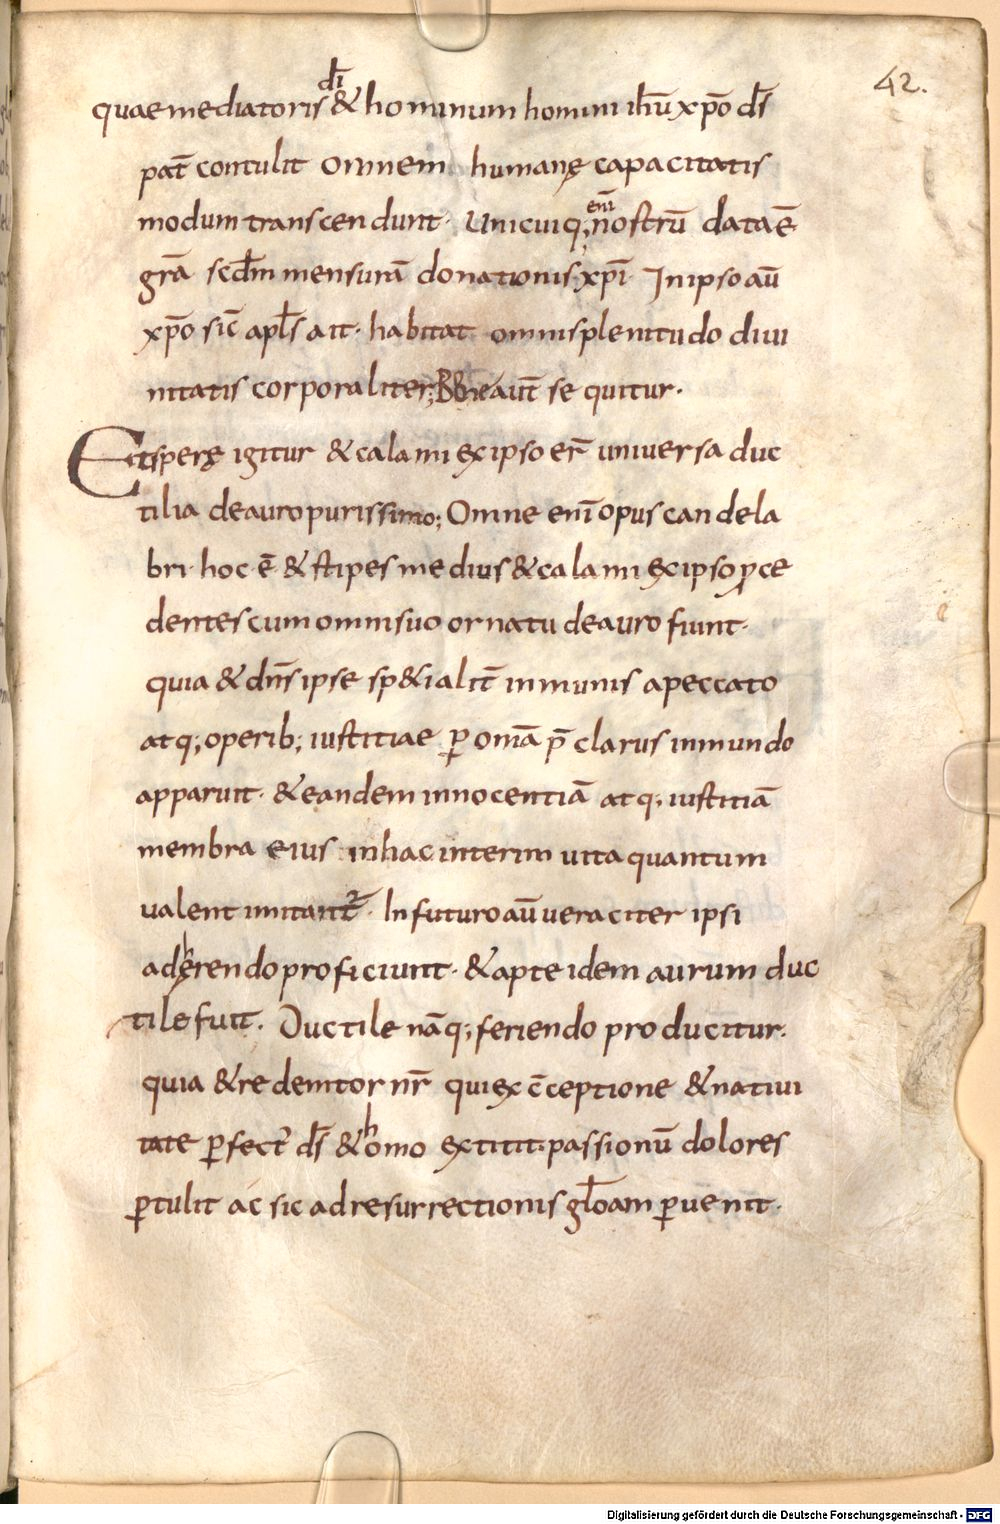 42.
quae mediatoris di̅ & hominum homini ih̅u xp̅o ds̅
pat̅ contulit omnem humanę capacitatis
modum transcendunt· Unicuiq; eni̅ nostru̅ data e̅
gr̅a scd̅m mensura̅ donationis xp̅i· In ipso au̅
xp̅o sic̅ apl̅s ait· habitat omnis plenitudo divi
nitatis corporaliter; aut̅ sequitur·
Et sperę igitur & calami ex ipso er̅ universa duc
tilia de auro purissimo; Omne eni̅ opus candela
bri· hoc· e̅· & stipes medius & calami ex ipso ꝓce
dentes cum omni suo ornatu de auro fiunt·
quia & dn̅s ipse sp&ialit̅ inmunis a peccato
atq; operib; iustitiae ꝑ om̅a p̅clarus in mundo
apparuit· & eandem innocentia̅ atq; iustitia̅
membra eius in hac interim vita quantum
valent imitant̅· In futuro au̅ veraciter ipsi
adherendo proficiunt· & apte idem aurum duc
tile fuit. Ductile na̅q; feriendo producitur·
quia & redemtor nr̅ qui ex c̅ceptione & nativi
tate ꝑfect' ds̅ & homo extitit· passionu̅ dolores
ꝑtulit ac sic ad resurrectionis gl̅oam ꝑvenit·
Digitalisierung gefördert durch die Deutsche Forschungsgemeinschaft - DFG